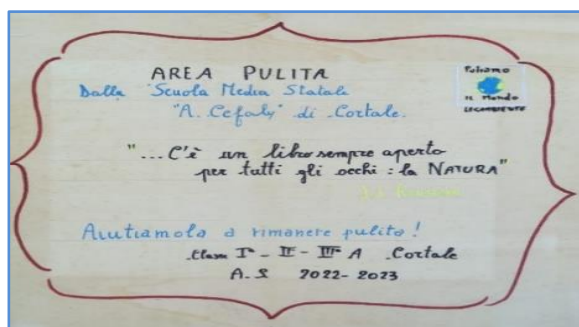 AREA PULITA
Dalla Scuola Media Statale
"A. Cefaly" di Cortale.
Puliamo
il Mondo
LEGAMBIENTE
"... C'è un libro sempre aperto
per tutti gli occhi : la NATURA"
J.J. Rousseau
Aiutiamola a rimanere pulita !
Classi Iª - II - IIIª A Cortale
A. S 2022-2023